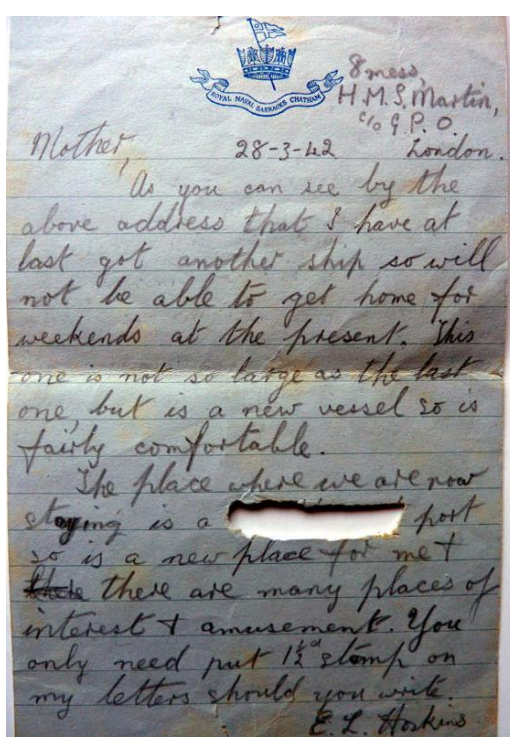 ROYAL NAVAL BARRACKS CHATHAM
8 mess,
H.M.S. Martin,
c/o G.P.O.
London.
28-3-42
Mother,
As you can see by the
above address that I have at
last got another ship so will
not be able to get home for
weekends at the present. This
one is not so large as the last
one, but is a new vessel so is
fairly comfortable.
The place where we are now
staying is a port
so is a new place for me +
there there are many places of
interest + amusement. You
only need put 1½d stamp on
my letters should you write.
E. L. Hoskins